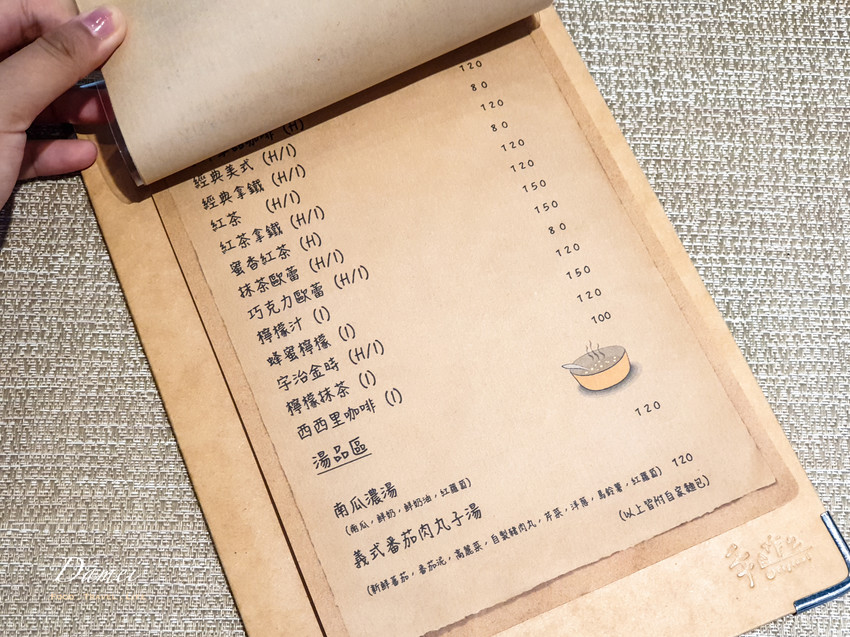 咖啡 (H) 120
經典美式 (H/I) 80
經典拿鐵 (H/I) 120
紅茶 (H/I) 80
紅茶拿鐵 (H/I) 120
蜜香紅茶 (H) 120
抹茶歐蕾 (H/I) 150
巧克力歐蕾 (H/I) 150
檸檬汁 (I) 80
蜂蜜檸檬 (I) 120
宇治金時 (H/I) 150
檸檬抹茶 (I) 120
西西里咖啡 (I) 100
湯品區
南瓜濃湯 120
(南瓜,鮮奶,鮮奶油,紅蘿蔔)
義式番茄肉丸子湯 120
(新鮮蕃茄,番茄泥,高麗菜,自製豬肉丸,芹菜,洋蔥,馬鈴薯,紅蘿蔔)
(以上皆附自家麵包)
Damee